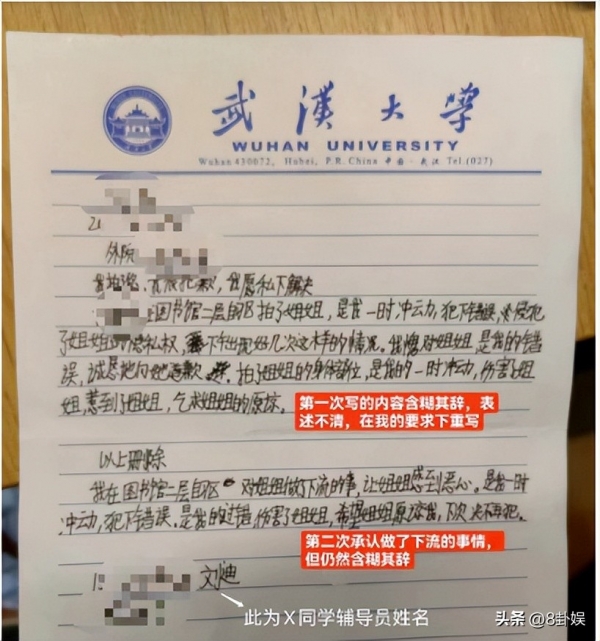 武漢大學
WUHAN UNIVERSITY
Wuhan 430072, Hubei, P.R. China 中国·武汉 Tel.(027)
外院
我愿私下解决
在图书馆二层自习区拍了姐姐，是我一时冲动，犯下错误，侵犯
了姐姐的隐私权，
我愧对姐姐，是我的错
误，诚恳地向她道歉，拍了姐姐的身体部位，是我的一时冲动，伤害了姐
姐，惹到了姐姐，乞求姐姐的原谅。
第一次写的内容含糊其辞，表
述不清，在我的要求下重写
以上删除
我在图书馆二层自习区 对姐姐做了下流的事，让姐姐感到恶心。是我一时
冲动，犯下错误。是我的过错伤害了姐姐，希望姐姐原谅我，下次决不再犯。
第二次承认做了下流的事情，
但仍然含糊其辞
文迪
此为X同学辅导员姓名
头条 @8卦娱